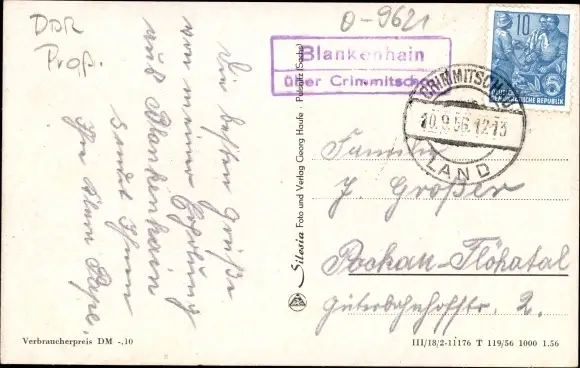 DDR
Prof.
O-9621
Blankenhain
über Crimmitschau
10
5
DEUTSCHE
DEMOKRATISCHE REPUBLIK
CRIMMITSCHAU
10.9.56.12-13
LAND
Die besten Grüße
von meiner Erholung
aus Blankenhain
sendet Ihnen
Ihr
Pape.
Silesia Foto und Verlag Georg Haufe · Pulsnitz (Sachs)
Familie
J. Großer
Pockau-Flöhatal
Güterbahnhofstr. 2.
Verbraucherpreis DM -,10
III/18/2-11176 T 119/56 1000 1.56